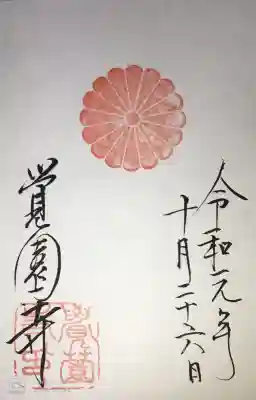 令和元年
十月二十六日
覚園寺